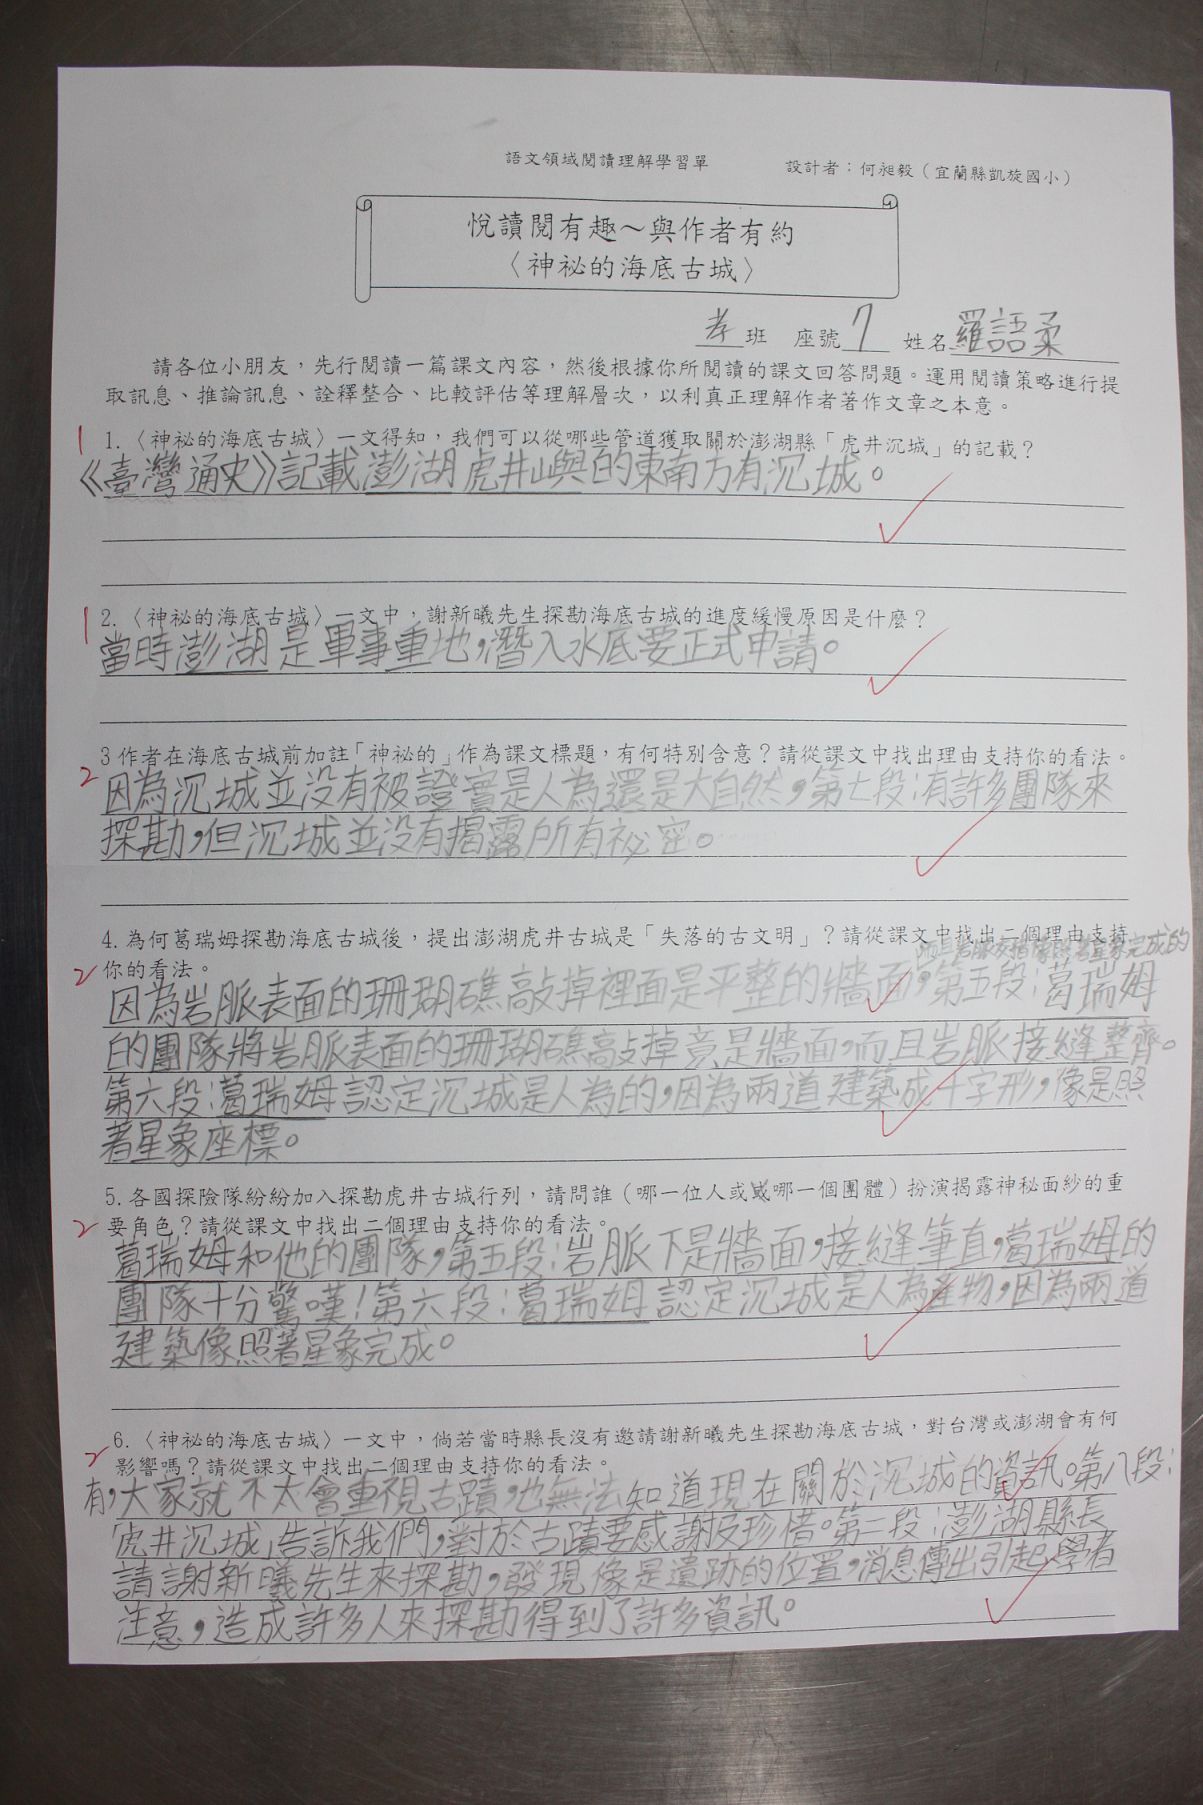 語文領域閱讀理解學習單 設計者：何昶毅（宜蘭縣凱旋國小）
悅讀閱有趣～與作者有約
〈神祕的海底古城〉
孝班 座號7 姓名羅語柔
請各位小朋友，先行閱讀一篇課文內容，然後根據你所閱讀的課文回答問題。運用閱讀策略進行提
取訊息、推論訊息、詮釋整合、比較評估等理解層次，以利真正理解作者著作文章之本意。
1 1.〈神祕的海底古城〉一文得知，我們可以從哪些管道獲取關於澎湖縣「虎井沉城」的記載？
《臺灣通史》記載澎湖虎井嶼的東南方有沉城。
1 2.〈神祕的海底古城〉一文中，謝新曦先生探勘海底古城的進度緩慢原因是什麼？
當時澎湖是軍事重地，潛入水底要正式申請。
3 作者在海底古城前加註「神祕的」作為課文標題，有何特別含意？請從課文中找出理由支持你的看法。
2 因為沉城並沒有被證實是人為還是大自然，第七段：有許多團隊來
探勘，但沉城並沒有揭露所有祕密。
4. 為何葛瑞姆探勘海底古城後，提出澎湖虎井古城是「失落的古文明」？請從課文中找出二個理由支持
2 你的看法。
因為岩脈表面的珊瑚礁敲掉裡面是平整的牆面，第五段：葛瑞姆
的團隊將岩脈表面的珊瑚礁敲掉竟是牆面，而且岩脈接縫整齊。
第六段：葛瑞姆認定沉城是人為的，因為兩道建築成十字形，像是照
著星象座標。
5. 各國探險隊紛紛加入探勘虎井古城行列，請問誰（哪一位人或哪一個團體）扮演揭露神秘面紗的重
2 要角色？請從課文中找出二個理由支持你的看法。
葛瑞姆和他的團隊，第五段：岩脈下是牆面，接縫筆直，葛瑞姆的
團隊十分驚嘆！第六段：葛瑞姆認定沉城是人為產物，因為兩道
建築像照著星象完成。
6.〈神祕的海底古城〉一文中，倘若當時縣長沒有邀請謝新曦先生探勘海底古城，對台灣或澎湖會有何
2 影響嗎？請從課文中找出二個理由支持你的看法。
有，大家就不太會重視古蹟，也無法知道現在關於沉城的資訊。第八段：
「虎井沉城」告訴我們，對於古蹟要感謝及珍惜。第二段：澎湖縣長
請謝新曦先生來探勘，發現像是遺跡的位置，消息傳出引起學者
注意，造成許多人來探勘得到了許多資訊。